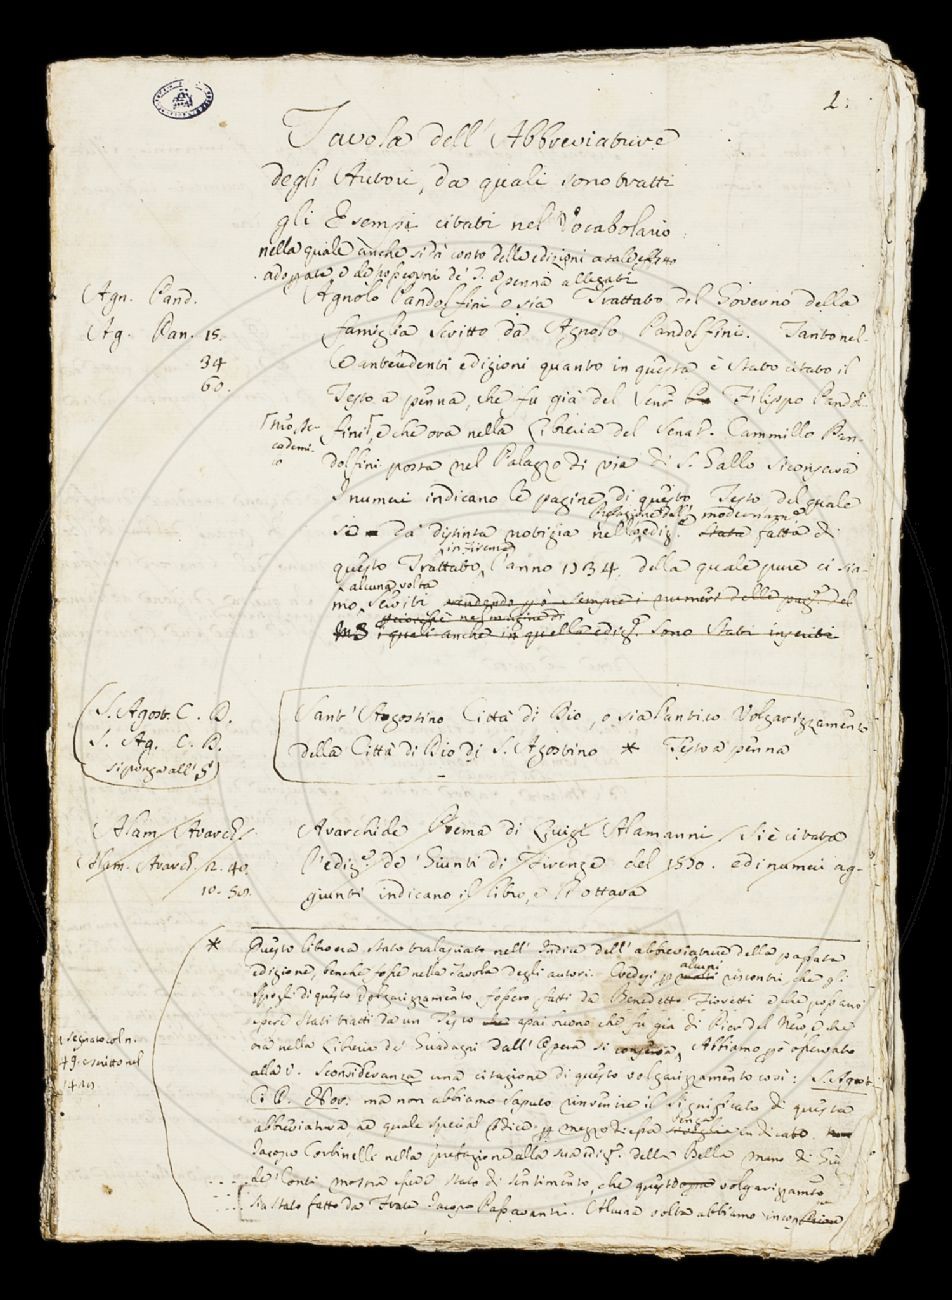 1.
Tavola dell'Abbreviature
degli Autori, da quali sono tratti
gli Esempi citati nel Vocabolario
nella quale anche si dà conto delle edizioni a tale effetto
adoprate, e de' possessori de' T. a penna allegati
Agn. Pand.
Ag. Pan. 15.
34
60.
Agnolo Pandolfini o sia Trattato del Governo della
famiglia scritto da Agnolo Pandolfini. Tanto nel-
l'antecedenti edizioni quanto in questa è stato citato il
Testo a penna, che fu già del Sena. Filippo Pandol
nro Ac-
cademi-
co
fini, e che ora nella Libreria del Senat. Cammillo Pan-
dolfini posta nel Palazzo di via di S. Gallo si conserva
I numeri indicano le pagine di questo Testo del quale
Prefazione dell' moderna
si da distinta notizia nell ediz. stata fatta di
in Firenze
questo Trattato l'anno 1734. della quale pure ci sia-
alcuna volta
mo serviti sempre i numeri delle pag. del
MS i quali anche in quella ediz. sono stati inseriti
S. Agost. C. D.
S. Ag. C. D.
si ponga all' S
Sant' Agostino Città di Dio, o sia l'antico Volgarizzamento
della Città di Dio di S. Agostino * Testo a penna
Alam. Avarch.
Alam. Avarch. 12. 40.
10. 50.
Avarchide Poema di Luigi Alamanni. Si è citata
l'ediz. de' Giunti di Firenze del 1570. ed i numeri ag-
giunti indicano il libro, e l'ottava
* Questo libro era stato tralasciato nell' Indice dell' abbreviature della passata
edizione, benché fosse nella Tavola degli autori. Credesi p alcuni riscontri, che gli
spogli di questo Volgarizzamento fossero fatti da Benedetto Fioretti e che possano
essere stati tratti da un Testo assai buono che fu già di Pier del Nero, e che
segnato col n.
49. e scritto nel
1419
ora nella Libreria de' Guadagni dall' Opera si conserva. Abbiamo però osservato
alla V. Sconsideranza una citazione di questo volgarizzamento così: S. Agost
C. D. ma non abbiamo saputo rinvenire il significato di questa
abbreviatura, ne quale special codice p mezzo di essa venga indicato.
Jacopo Corbinelli nella prefazione alla sua ediz. della Bella mano di Giu
de' Conti mostra essere stato di sentimento, che questo volgarizzamento
sia stato fatto da Frate Jacopo Passavanti. Alcuna volta abbiamo